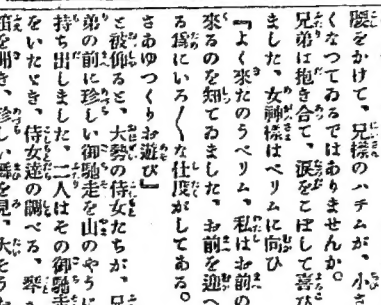 腰をかけて、兄樣のハチムが、小さ
くなつてゐるではありませんか。
兄弟は抱き合て、涙をこぼして喜び
ました。女神樣はベリムに向ひ
『よく來たのうベリム、私はお前の
來るのを知てゐました、お前を迎へ
る爲にいろ〱な仕度がしてある。
さあゆつくりお遊び』
と被仰ると、大勢の侍女たちが、兄
弟の前に珍しい御馳走を山のやうに
持ち出しました。二人はその御馳走
をいたとき、侍女達の調べる、琴
笛を聞き、珍しい舞を見、大そう